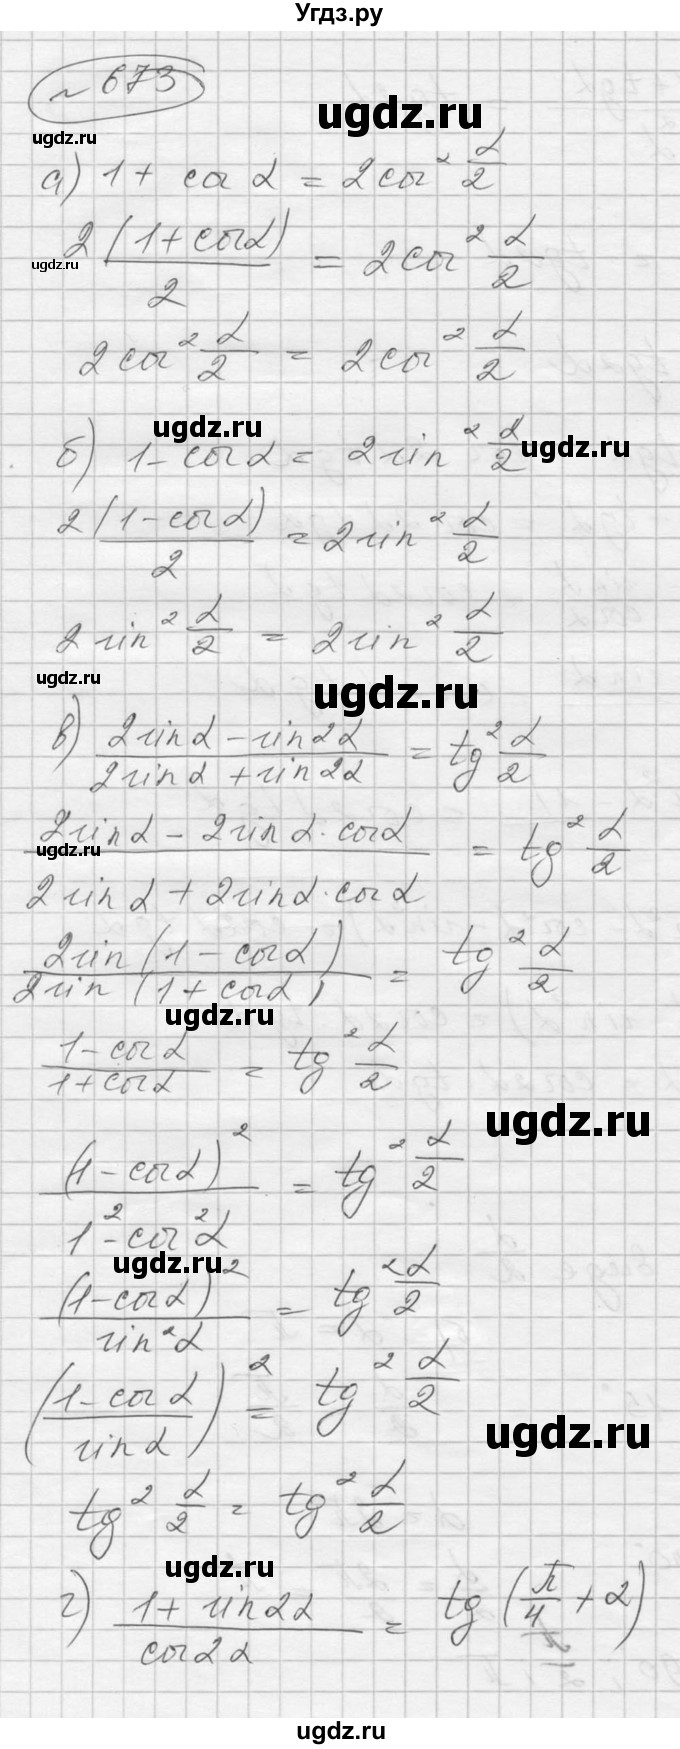 Угдз.ру
№ 673
ugdz.ru
ugdz.ru
а) 1 + cos α = 2cos² α/2
2(1+cosα)/2 = 2cos² α/2
ugdz.ru
2cos² α/2 = 2cos² α/2
ugdz.ru
б) 1 - cos α = 2sin² α/2
ugdz.ru
2(1-cosα)/2 = 2sin² α/2
2sin² α/2 = 2sin² α/2
ugdz.ru
ugdz.ru
в) (2sinα - sin2α)/(2sinα + sin2α) = tg² α/2
(2sinα - 2sinα·cosα)/(2sinα + 2sinα·cosα) = tg² α/2
ugdz.ru
2sin(1-cosα)/2sin(1+cosα) = tg² α/2
ugdz.ru
(1-cosα)/(1+cosα) = tg² α/2
ugdz.ru
(1-cosα)²/(1²-cos²α) = tg² α/2
ugdz.ru
(1-cosα)²/sin²α = tg² α/2
((1-cosα)/sinα)² = tg² α/2
ugdz.ru
tg² α/2 = tg² α/2
ugdz.ru
г) (1 + sin2α)/cos2α = tg(π/4 + α)
ugdz.ru